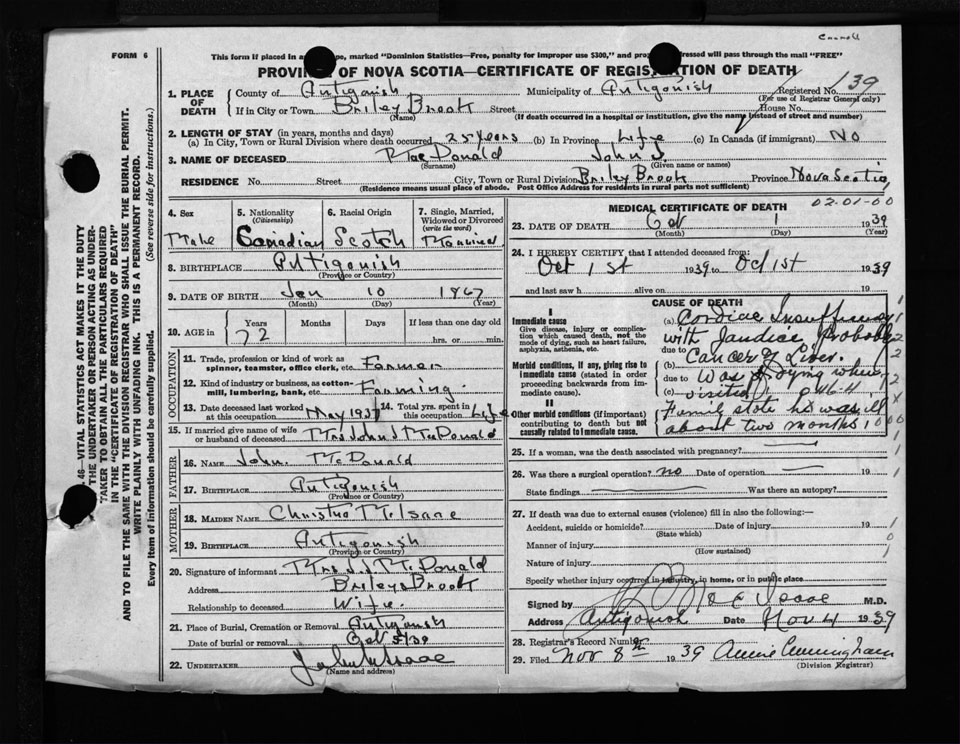 Carroll
FORM 6
This form if placed in an pe, marked "Dominion Statistics—Free, penalty for improper use $300," and pro dressed will pass through the mail "FREE"
PROVIN OF NOVA SCOTIA—CERTIFICATE OF REGIS ION OF DEATH
1. PLACE OF DEATH County of Antigonish Municipality of Antigonish Registered No. 139
(For use of Registrar General only)
If in City or Town Briley Brook Street House No.
(Name) (If death occurred in a hospital or institution, give the name instead of street and number)
2. LENGTH OF STAY (in years, months and days)
(a) In City, Town or Rural Division where death occurred 25 years (b) In Province Life (c) In Canada (if immigrant) No
3. NAME OF DECEASED MacDonald John J.
(Surname) (Given name or names)
RESIDENCE No. Street City, Town or Rural Division Briley Brook Province Nova Scotia
(Residence means usual place of abode. Post Office Address for residents in rural parts not sufficient)
4. Sex 5. Nationality (Citizenship) 6. Racial Origin 7. Single, Married, Widowed or Divorced (write the word)
Male Canadian Scotch Married
8. BIRTHPLACE Antigonish
(Province or Country)
9. DATE OF BIRTH Jan 10 1867
(Month) (Day) (Year)
10. AGE in Years Months Days If less than one day old
72 hrs. or min.
OCCUPATION
11. Trade, profession or kind of work as spinner, teamster, office clerk, etc. Farmer
12. Kind of industry or business, as cotton-mill, lumbering, bank, etc. Farming
13. Date deceased last worked at this occupation May 1937 14. Total yrs. spent in this occupation Life
15. If married give name of wife or husband of deceased Mrs John J MacDonald
FATHER
16. NAME John McDonald
17. BIRTHPLACE Antigonish
(Province or Country)
MOTHER
18. MAIDEN NAME Christina McIsaac
19. BIRTHPLACE Antigonish
(Province or Country)
20. Signature of informant Mrs J. J. McDonald
Address Brileys Brook
Relationship to deceased Wife
21. Place of Burial, Cremation or Removal Antigonish
Date of burial or removal Oct 5/39
22. UNDERTAKER
(Name and address)
MEDICAL CERTIFICATE OF DEATH
02.01-00
23. DATE OF DEATH Oct 1 1939
(Month) (Day) (Year)
24. I HEREBY CERTIFY that I attended deceased from:
Oct 1st 1939 to Oct 1st 1939
and last saw h alive on 19
CAUSE OF DEATH
I
Immediate cause
Give disease, injury or complication which caused death, not the mode of dying, such as heart failure, asphyxia, asthenia, etc.
(a) Cardiac Insufficiency
with Jaundice, Probably
due to
Morbid conditions, if any, giving rise to immediate cause (stated in order proceeding backwards from immediate cause).
(b) Cancer of Liver.
due to Was dying when
(c) visited 46-4
II
Other morbid conditions (if important) contributing to death but not causally related to immediate cause.
Family state he was ill
about two months
25. If a woman, was the death associated with pregnancy?
26. Was there a surgical operation? no Date of operation 19
State findings Was there an autopsy?
27. If death was due to external causes (violence) fill in also the following:—
Accident, suicide or homicide? Date of injury 19
(State which)
Manner of injury
(How sustained)
Nature of injury
Specify whether injury occurred in industry, in home, or in public place
Signed by MacIsaac M.D.
Address Antigonish Date Nov 4 1939
28. Registrar's Record Number
29. Filed Nov 8th 1939 Annie Cunningham
(Division Registrar)
46—VITAL STATISTICS ACT MAKES IT THE DUTY
THE UNDERTAKER OR PERSON ACTING AS UNDER-
TAKER TO OBTAIN ALL THE PARTICULARS REQUIRED
IN THE "CERTIFICATE OF REGISTRATION OF DEATH"
AND TO FILE THE SAME WITH THE DIVISION REGISTRAR WHO SHALL ISSUE THE BURIAL PERMIT.
WRITE PLAINLY WITH UNFADING INK. THIS IS A PERMANENT RECORD.
Every item of information should be carefully supplied. (See reverse side for instructions.)